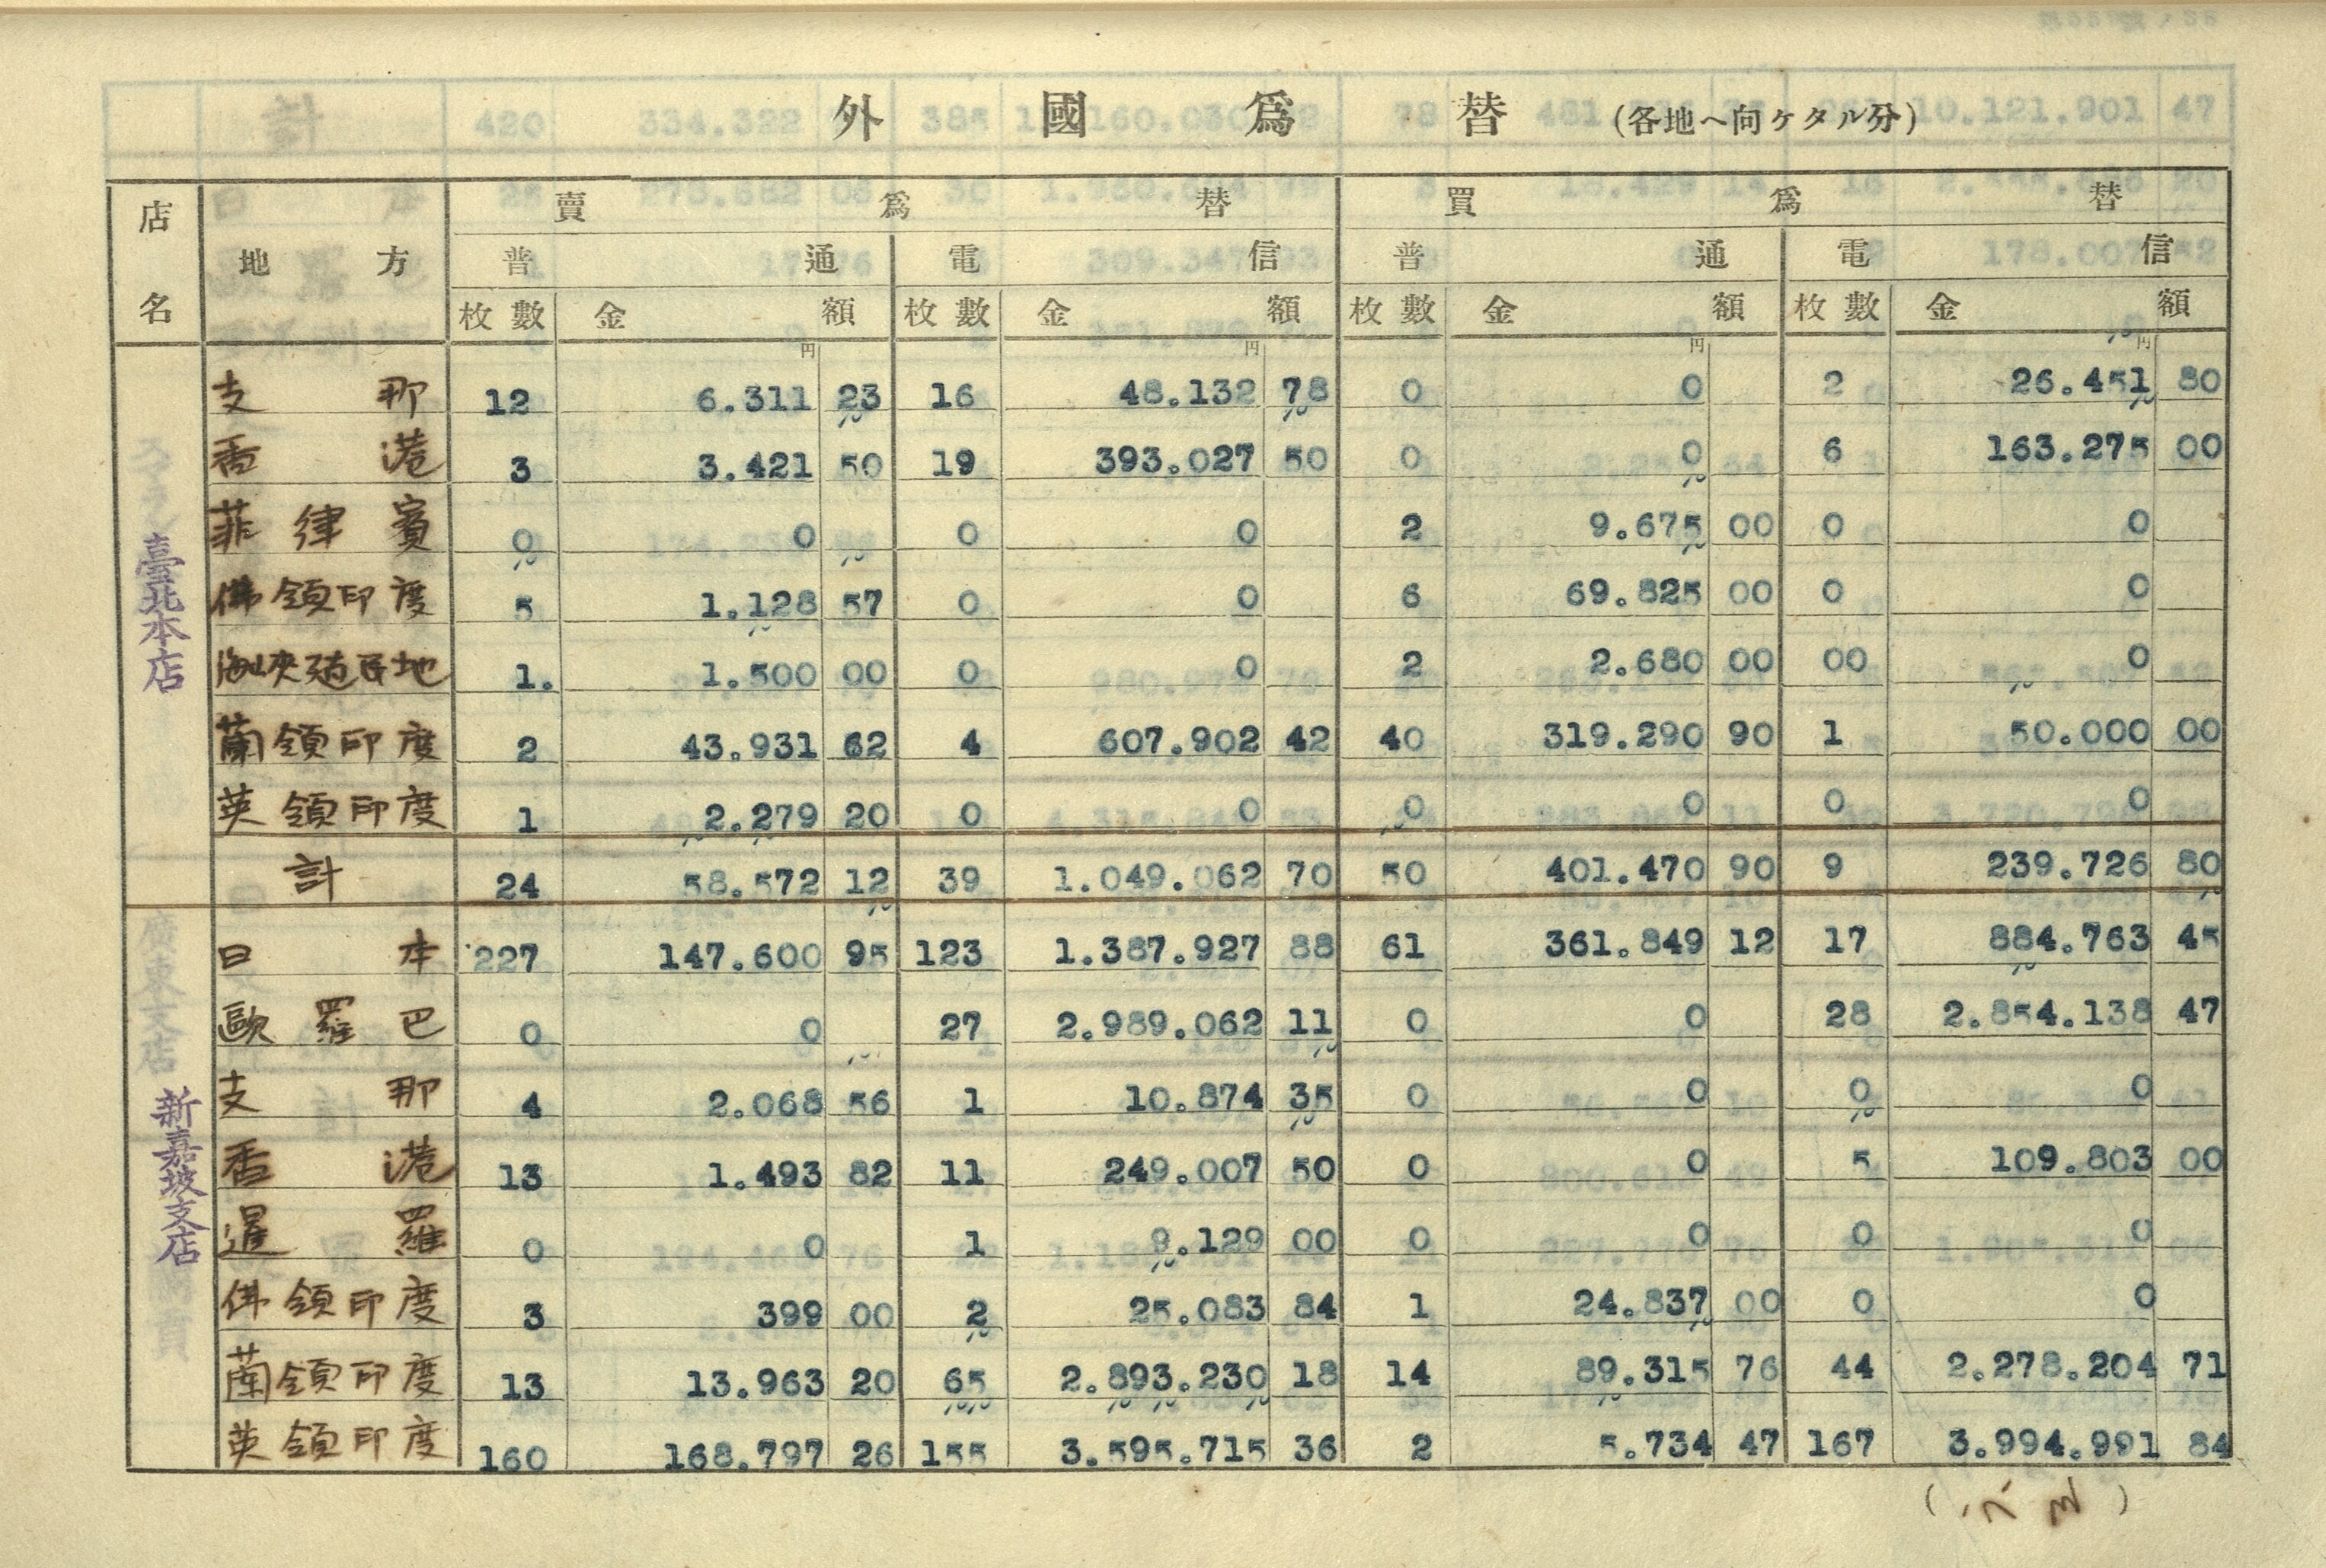 外國爲替(各地ヘ向ケタル分)
店名 地方 賣爲替 買爲替
普通 電信 普通 電信
枚數 金額 枚數 金額 枚數 金額 枚數 金額
円 円 円 円
臺北本店
支那 12 6.311 23 16 48.132 78 0 0 2 26.451 80
香港 3 3.421 50 19 393.027 50 0 0 6 163.275 00
菲律賓 0 0 0 0 2 9.675 00 0 0
佛領印度 5 1.128 57 0 0 6 69.825 00 0 0
海峡殖民地 1. 1.500 00 0 0 2 2.680 00 00 0
蘭領印度 2 43.931 62 4 607.902 42 40 319.290 90 1 50.000 00
英領印度 1 2.279 20 0 0 0 0 0 0
計 24 58.572 12 39 1.049.062 70 50 401.470 90 9 239.726 80
新嘉坡支店
日本 227 147.600 95 123 1.387.927 88 61 361.849 12 17 884.763 45
歐羅巴 0 0 27 2.989.062 11 0 0 28 2.854.138 47
支那 4 2.068 56 1 10.874 35 0 0 0 0
香港 13 1.493 82 11 249.007 50 0 0 5 109.803 00
暹羅 0 0 1 9.129 00 0 0 0 0
佛領印度 3 399 00 2 25.083 84 1 24.837 00 0 0
蘭領印度 13 13.963 20 65 2.893.230 18 14 89.315 76 44 2.278.204 71
英領印度 160 168.797 26 155 3.595.715 36 2 5.734 47 167 3.994.991 84